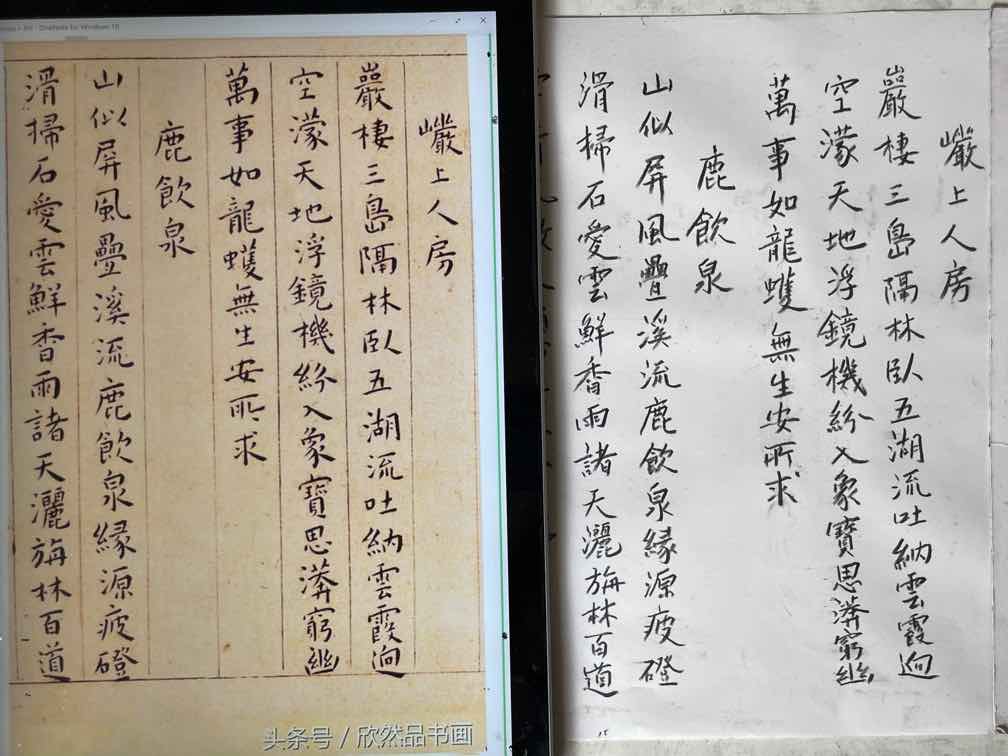 OneNote for Windows 10
巗上人房
嚴棲三島隔林臥五湖流吐納雲霞逈
空濛天地浮鏡機紛入象寶思漭窮幽
萬事如龍蠖無生安所求
鹿飲泉
山似屏風疊溪流鹿飲泉緣源疲磴
滑掃石愛雲鮮香雨諸天灑旃林百道
头条号 / 欣然品书画
巗上人房
嚴棲三島隔林臥五湖流吐納雲霞逈
空濛天地浮鏡機紛入象寶思漭窮幽
萬事如龍蠖無生安所求
鹿飲泉
山似屏風疊溪流鹿飲泉緣源疲磴
滑掃石愛雲鮮香雨諸天灑旃林百道